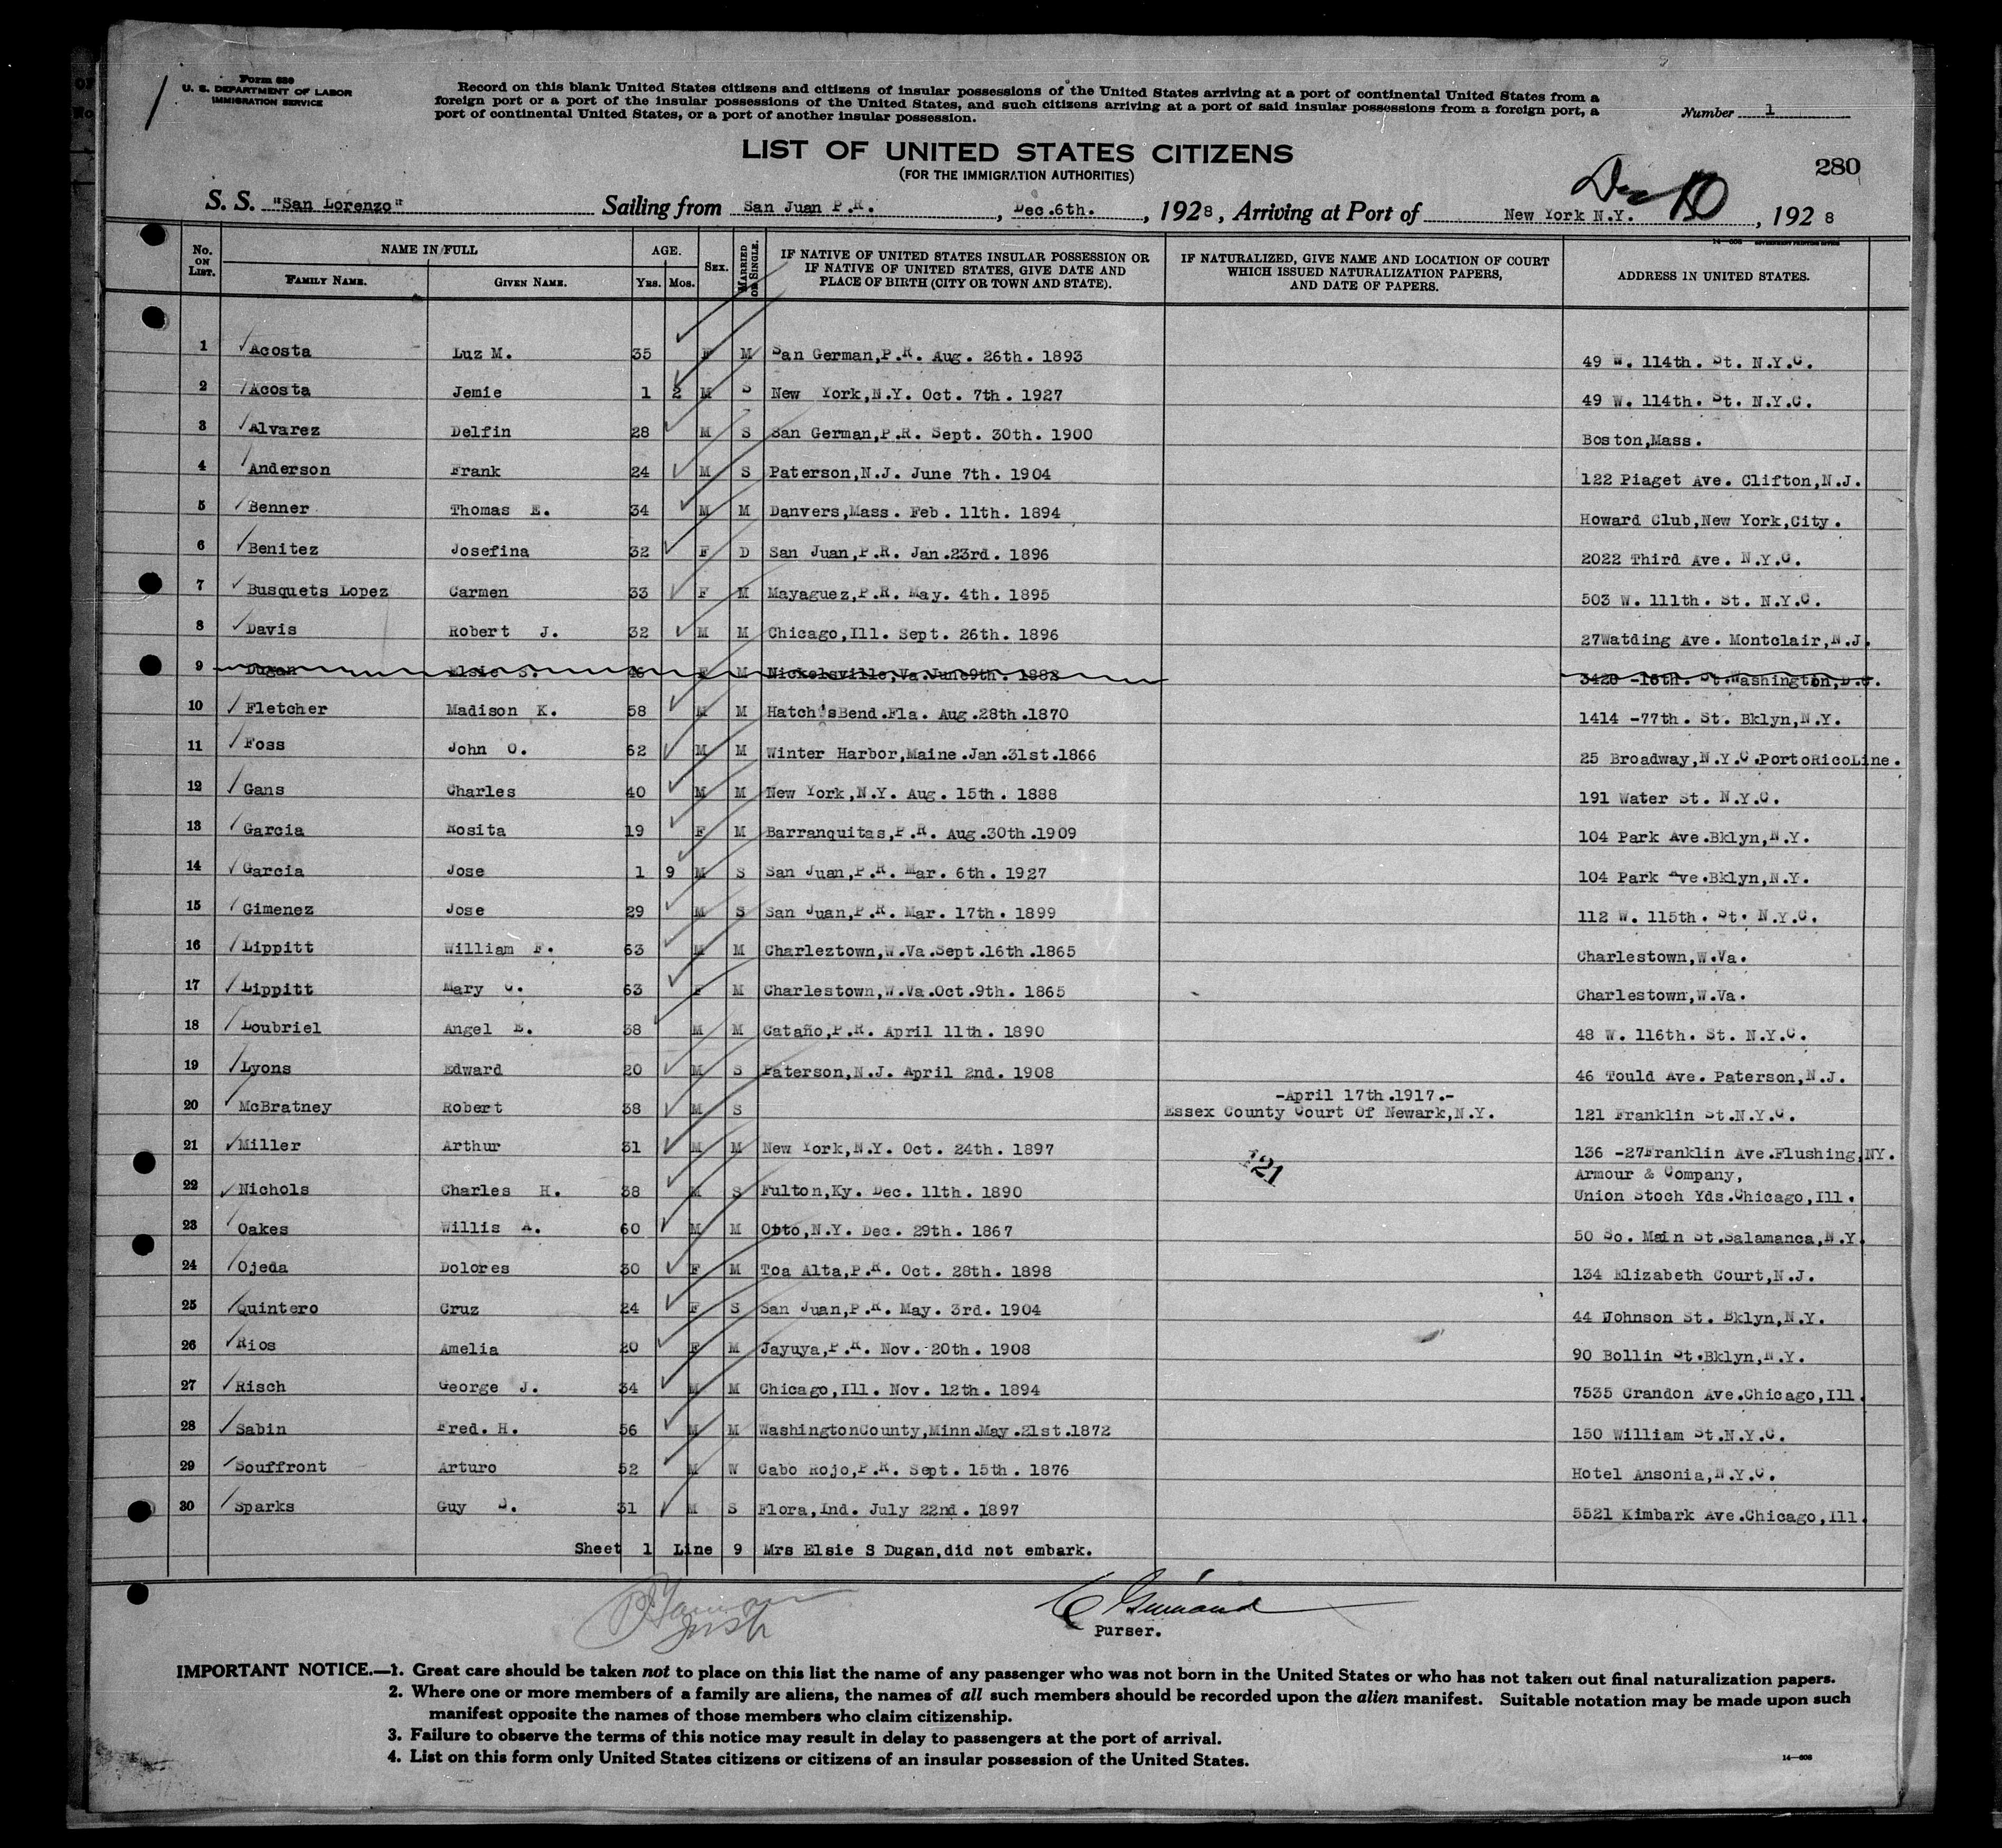 Form 630
U. S. DEPARTMENT OF LABOR
IMMIGRATION SERVICE
Record on this blank United States citizens and citizens of insular possessions of the United States arriving at a port of continental United States from a
foreign port or a port of the insular possessions of the United States, and such citizens arriving at a port of said insular possessions from a foreign port, a
port of continental United States, or a port of another insular possession.
Number 1
LIST OF UNITED STATES CITIZENS
(FOR THE IMMIGRATION AUTHORITIES)
280
Dec 10
S. S. "San Lorenzo" Sailing from San Juan P.R. , Dec.6th. , 1928, Arriving at Port of New York N.Y. , 1928
No. ON LIST. NAME IN FULL FAMILY NAME. GIVEN NAME. AGE. YRS. MOS. SEX. MARRIED OR SINGLE. IF NATIVE OF UNITED STATES INSULAR POSSESSION OR IF NATIVE OF UNITED STATES, GIVE DATE AND PLACE OF BIRTH (CITY OR TOWN AND STATE). IF NATURALIZED, GIVE NAME AND LOCATION OF COURT WHICH ISSUED NATURALIZATION PAPERS, AND DATE OF PAPERS. ADDRESS IN UNITED STATES.
1 Acosta Luz M. 35 F M San German,P.R. Aug. 26th. 1893 49 W. 114th. St. N.Y.C.
2 Acosta Jemie 1 2 M S New York,N.Y. Oct. 7th. 1927 49 W. 114th. St. N.Y.C.
3 Alvarez Delfin 28 M S San German,P.R. Sept. 30th. 1900 Boston,Mass.
4 Anderson Frank 24 M S Paterson,N.J. June 7th. 1904 122 Piaget Ave. Clifton,N.J.
5 Benner Thomas E. 34 M M Danvers,Mass. Feb. 11th. 1894 Howard Club,New York,City.
6 Benitez Josefina 32 F D San Juan,P.R. Jan.23rd. 1896 2022 Third Ave. N.Y.C.
7 Busquets Lopez Carmen 33 F M Mayaguez,P.R. May. 4th. 1895 503 W. 111th. St. N.Y.C.
8 Davis Robert J. 32 M M Chicago,Ill. Sept. 26th. 1896 27Watding Ave. Montclair,N.J.
9 Dugan Elsie S. 46 F M Nickelsville,Va.June9th. 1882 3420 -16th. St.Washington,D.C.
10 Fletcher Madison K. 58 M M Hatch'sBend.Fla. Aug.28th.1870 1414 -77th. St. Bklyn,N.Y.
11 Foss John O. 62 M M Winter Harbor,Maine.Jan.31st.1866 25 Broadway,N.Y.C.PortoRicoLine.
12 Gans Charles 40 M M New York,N.Y. Aug. 15th. 1888 191 Water St. N.Y.C.
13 Garcia Rosita 19 F M Barranquitas,P.R. Aug.30th.1909 104 Park Ave.Bklyn,N.Y.
14 Garcia Jose 1 9 M S San Juan,P.R. Mar. 6th. 1927 104 Park Ave.Bklyn,N.Y.
15 Gimenez Jose 29 M S San Juan,P.R. Mar. 17th. 1899 112 W. 115th. St. N.Y.C.
16 Lippitt William F. 63 M M Charleztown,W.Va.Sept.16th.1865 Charlestown,W.Va.
17 Lippitt Mary C. 63 F M Charlestown,W.Va.Oct.9th. 1865 Charlestown,W.Va.
18 Loubriel Angel E. 38 M M Cataño,P.R. April 11th. 1890 48 W. 116th. St. N.Y.C.
19 Lyons Edward 20 M S Paterson,N.J. April 2nd. 1908 46 Tould Ave. Paterson,N.J.
-April 17th.1917.-
20 McBratney Robert 38 M S Essex County Court Of Newark,N.Y. 121 Franklin St.N.Y.C.
21 Miller Arthur 31 M M New York,N.Y. Oct. 24th. 1897 136 -27Franklin Ave.Flushing,NY.
121
Armour & Company,
22 Nichols Charles H. 38 M S Fulton,Ky. Dec. 11th. 1890 Union Stoch Yds.Chicago,Ill.
23 Oakes Willis A. 60 M M Otto,N.Y. Dec. 29th. 1867 50 So. Main St.Salamanca,N.Y.
24 Ojeda Dolores 30 F M Toa Alta,P.R. Oct. 28th. 1898 134 Elizabeth Court,N.J.
25 Quintero Cruz 24 F S San Juan,P.R. May. 3rd. 1904 44 Johnson St. Bklyn,N.Y.
26 Rios Amelia 20 F M Jayuya,P.R. Nov. 20th. 1908 90 Bollin St.Bklyn,N.Y.
27 Risch George J. 34 M M Chicago,Ill. Nov. 12th. 1894 7535 Crandon Ave.Chicago,Ill.
28 Sabin Fred. H. 56 M M WashingtonCounty,Minn.May.21st.1872 150 William St.N.Y.C.
29 Souffront Arturo 52 M W Cabo Rojo,P.R. Sept. 15th. 1876 Hotel Ansonia,N.Y.C.
30 Sparks Guy 31 M S Flora,Ind. July 22nd. 1897 5521 Kimbark Ave.Chicago,Ill.
Sheet 1 Line 9 Mrs Elsie S Dugan,did not embark.
Purser.
IMPORTANT NOTICE.—1. Great care should be taken not to place on this list the name of any passenger who was not born in the United States or who has not taken out final naturalization papers.
2. Where one or more members of a family are aliens, the names of all such members should be recorded upon the alien manifest. Suitable notation may be made upon such
manifest opposite the names of those members who claim citizenship.
3. Failure to observe the terms of this notice may result in delay to passengers at the port of arrival.
4. List on this form only United States citizens or citizens of an insular possession of the United States.
14—608